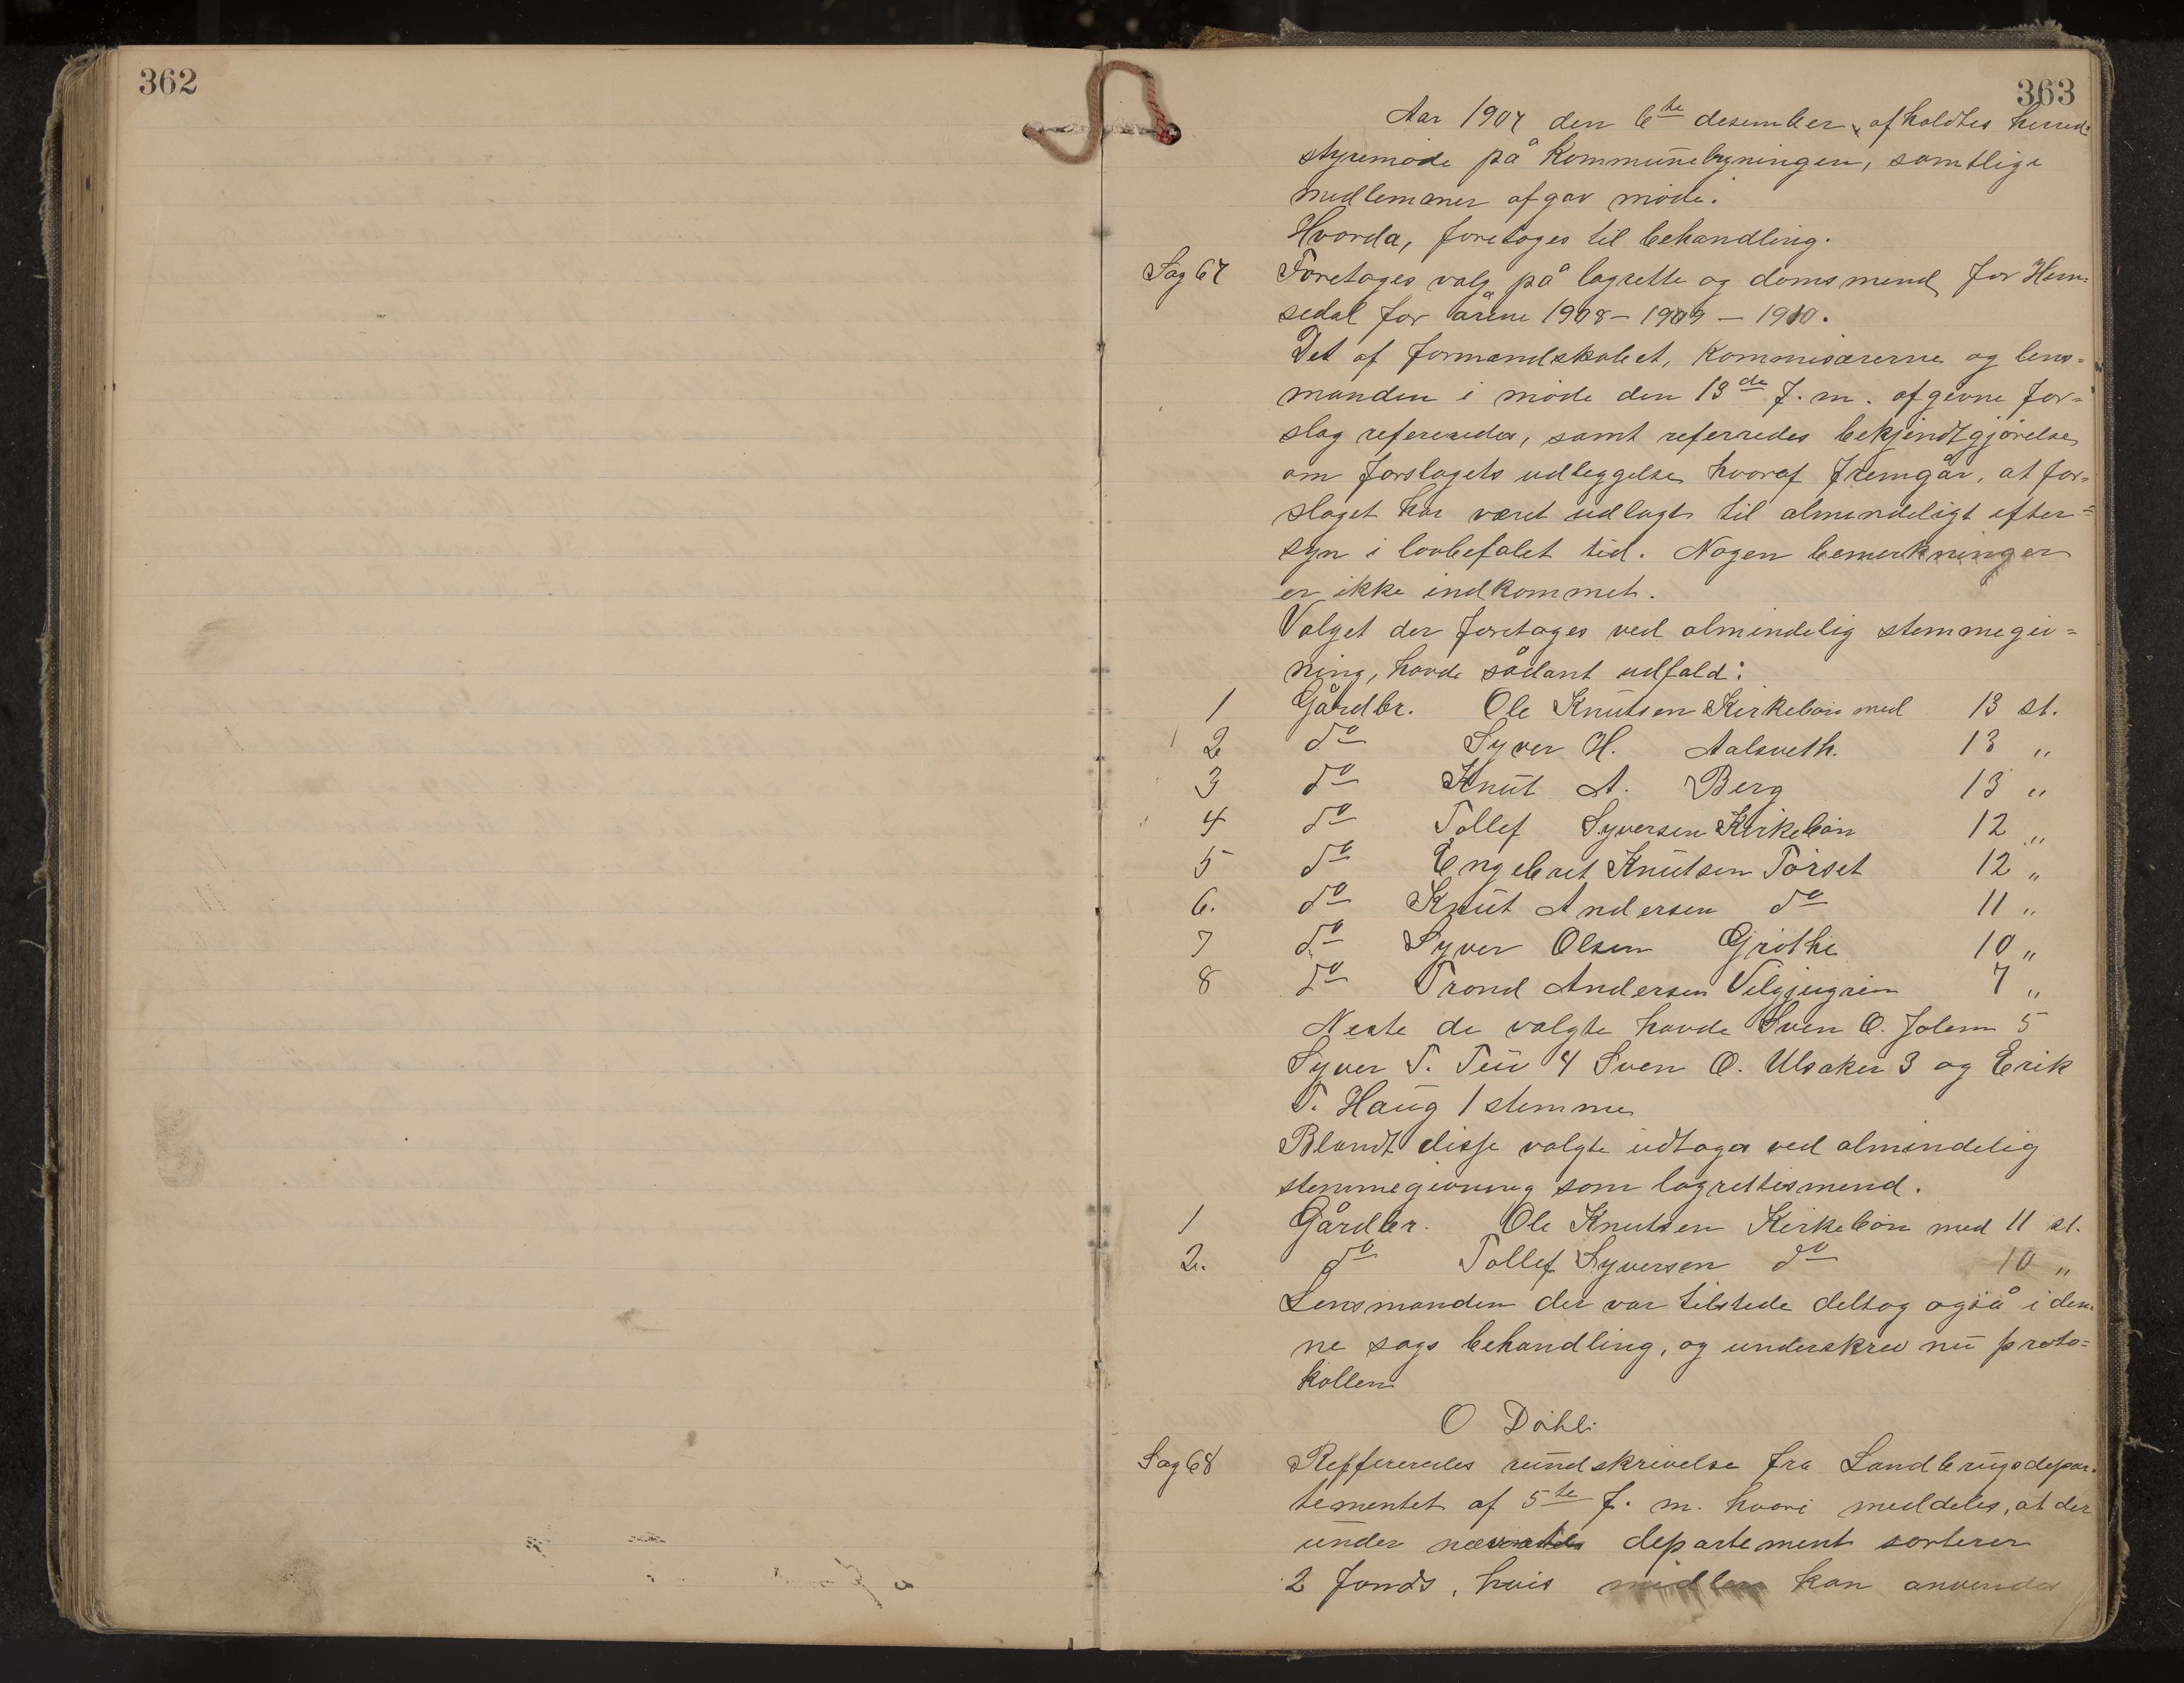 362
363
Aar 1907 den 6te desember afholdtes herred-
styremøde på Kommunebygningen, samtlige
medlemmer afgav møde.
Hvorda, foretoges til behandling.
Sag 67 Foretages valg på lagrette og domsmend for Hem-
sedal for årene 1908 – 1909 – 1910.
Det af formandskabet, Kommisærerne og lens-
manden i møde den 13de f. m. afgivne for-
slag refereredes, samt referredes bekjendtgjørelse
om forslagets udleggelse hvoraf fremgår, at for-
slaget har været udlagt til almindeligt efter-
syn i lovbefalet tid. Nogen bemerkninger
er ikke indkommet.
Valget der foretages ved almindelig stemmegiv-
ning, havde sådant udfald:
1 Gårdbr. Ole Knutsen Kirkebøn med 13 st.
2 do Syver H. Aalsveth. 13 „
3 do Knut A. Berg 13 „
4 do Tollef Syversen Kirkebøn 12 „
5 do Engebret Knutsen Tørset 12 „
6. do Knut Andersen do 11 „
7 do Syver Olsen Grøthe 10 „
8 do Trond Andersen 7 „
Neste de valgte havde Sven O. Jolem 5
Syver T. Tuv 4 Sven O. Ulsaker 3 og Erik
T. Haug 1 stemme
Blandt disse valgte udtoges ved almindelig
stemmegivning som lagrettesmend.
1 Gårdbr. Ole Knutsen Kirkebøn med 11 st.
2. do Tollef Syversen do 10 „
Lensmanden der var tilstede deltog også i den-
ne sags behandling, og underskrev nu proto-
kollen
O Døhli
Sag 68 Reffereredes rundskrivelse fra Landbrugsdepar-
tementet af 5te f. m. hvori meddeles, at der
under nævnte departement sorterer
2 fonds, hvis midler kan anvendes